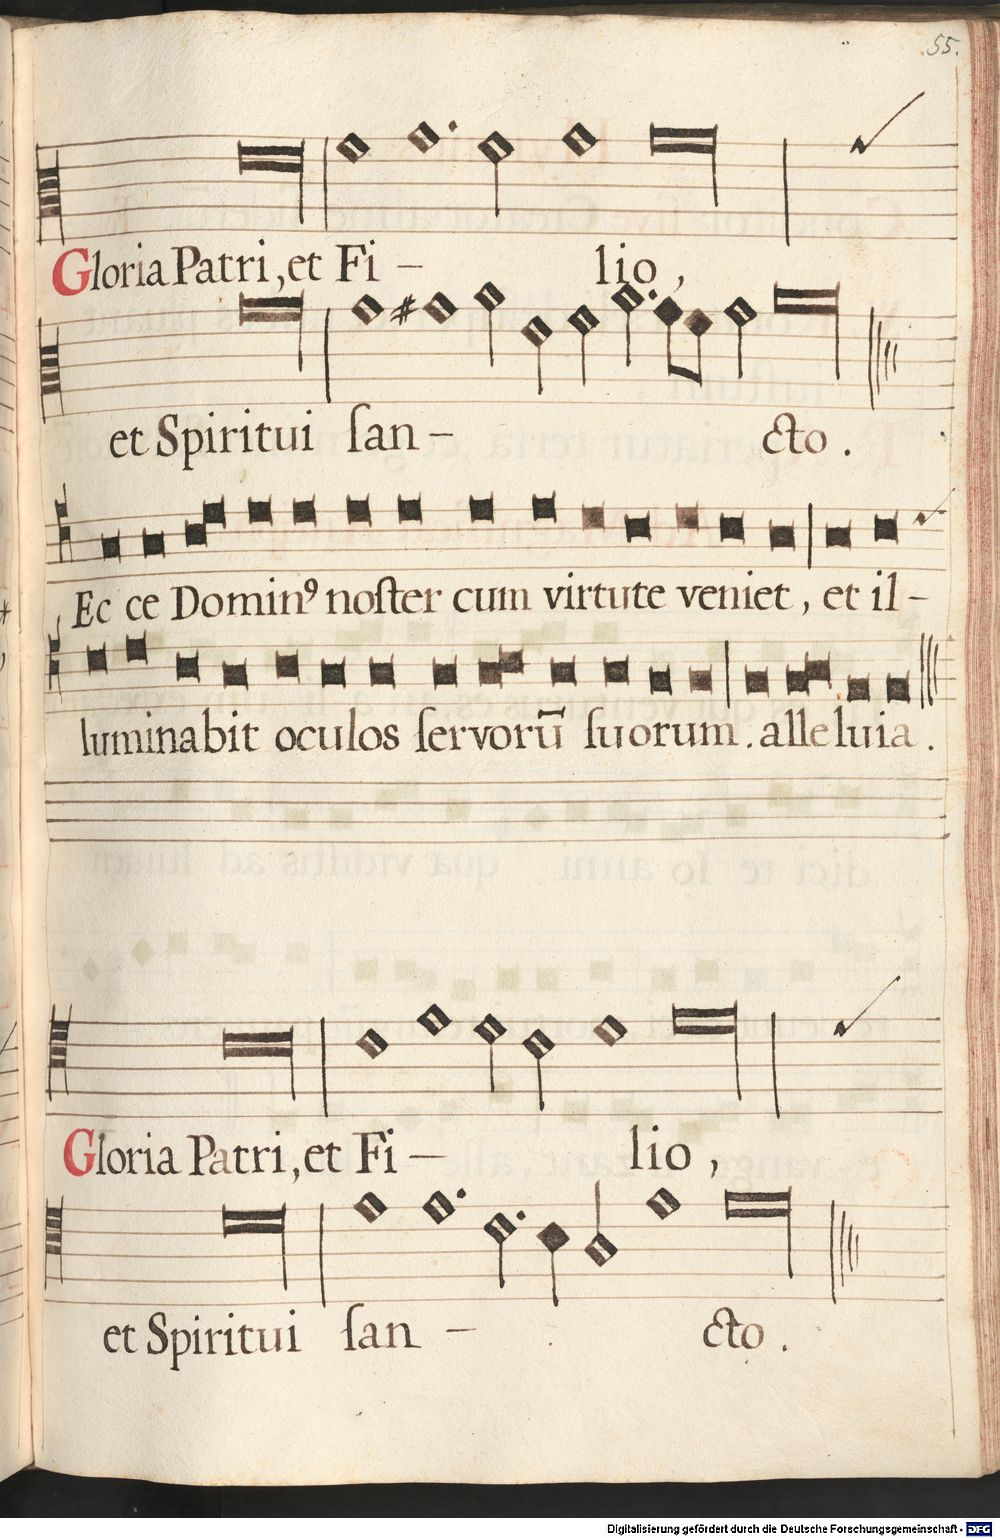 55.
Gloria Patri, et Fi – lio,
et Spiritui ſan – cto.
Ec ce Dominꝰ noſter cum virtute veniet, et il –
luminabit oculos ſervorū ſuorum. alleluia.
Gloria Patri, et Fi – lio,
et Spiritui ſan – cto.
Digitalisierung gefördert durch die Deutsche Forschungsgemeinschaft - DFG